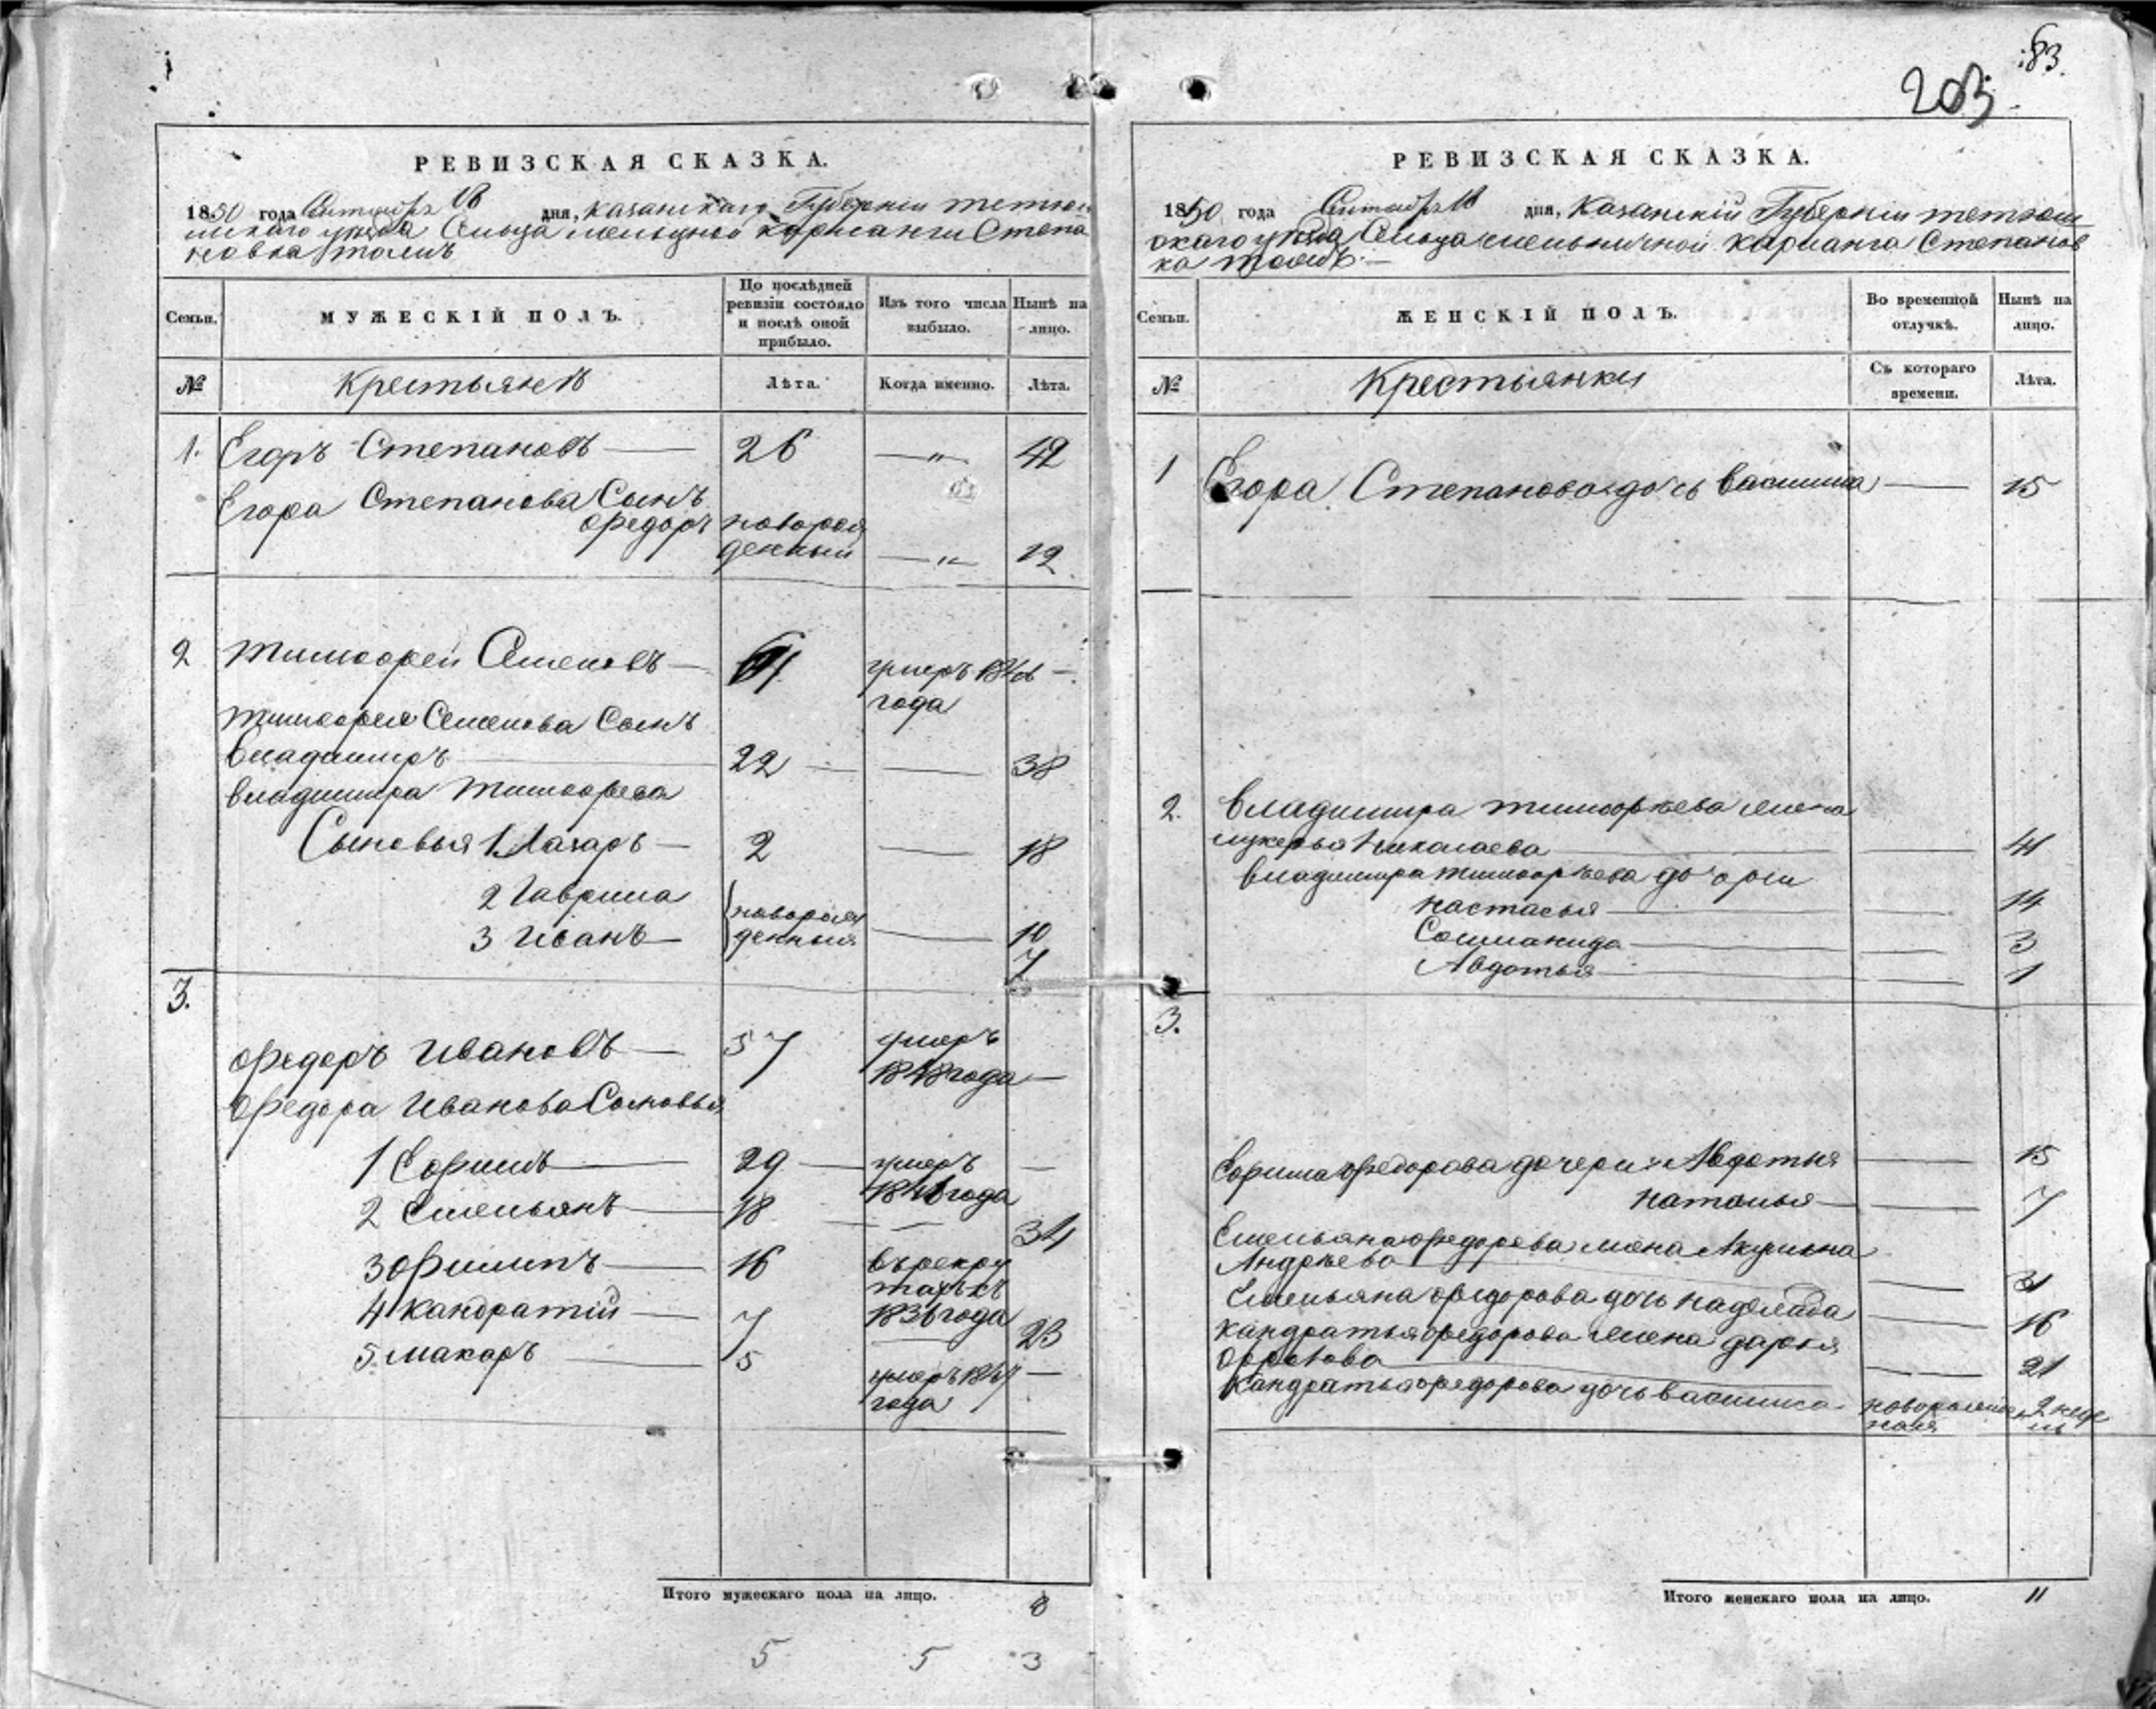 203
83.
РЕВИЗСКАЯ СКАЗКА.
1850 года Сентября 18 дня, казанскаго Губернии тетюш
скаго уезда Сельца мельцной кармалги Степа
новка тожъ
Семьи.
МУЖЕСКІЙ ПОЛЪ.
По послѣдней ревизіи состояло и послѣ оной прибыло.
Изъ того числа выбыло.
Нынѣ на лицо.
№
Крестьянѣ
Лѣта.
Когда именно.
Лѣта.
1. Егоръ Степановъ 26 42
Егора Степанова Сынъ
Федоръ новорож
денный 12
2 Тимофей Семеновъ умеръ
года
Тимофея Семенова Сынъ
Владимиръ 22 38
Владимира Тимофеева
Сыновья 1 Лазарь 2 18
2 Гаврила новорож
3 Иванъ денныя 10
7
3.
Федоръ Ивановъ 57 умеръ
1848 года
Федора Иванова Сыновья
1 Ефимъ 29 умеръ
года
2 Емельянъ 18 34
3 Филипъ 16 въ рекру
тахъ съ
1836 года
4 кандратий 7 23
5 Макаръ 5 умеръ
года
Итого мужескаго пола на лицо. 8
5 5 3
РЕВИЗСКАЯ СКАЗКА.
1850 года Сентября 18 дня, Казанский Губернии тетюш
скаго уезда Сельца мельничной кармалга Степанов
ка тожъ.
Семьи.
ЖЕНСКІЙ ПОЛЪ.
Во временной отлучкѣ.
Нынѣ на лицо.
№
Крестьянки
Съ котораго времени.
Лѣта.
1 Егора Степанова дочь Василиса 15
2. Владимира тимофѣева жена
лукерья Николаева 41
Владимира тимофѣева дочери
настасья 14
Соломанида 3
Авдотья 1
3.
Ефима федорова дочери: Авдотья 15
наталья 7
Емельяна федорова жена Акулина
Андрѣева 31
Емельяна федорова дочь надежда 16
Кандратья федорова жена дарья
21
Кандратья федорова дочь василиса новорожден
ная 2 неде
ль
Итого женскаго пола на лицо. 11